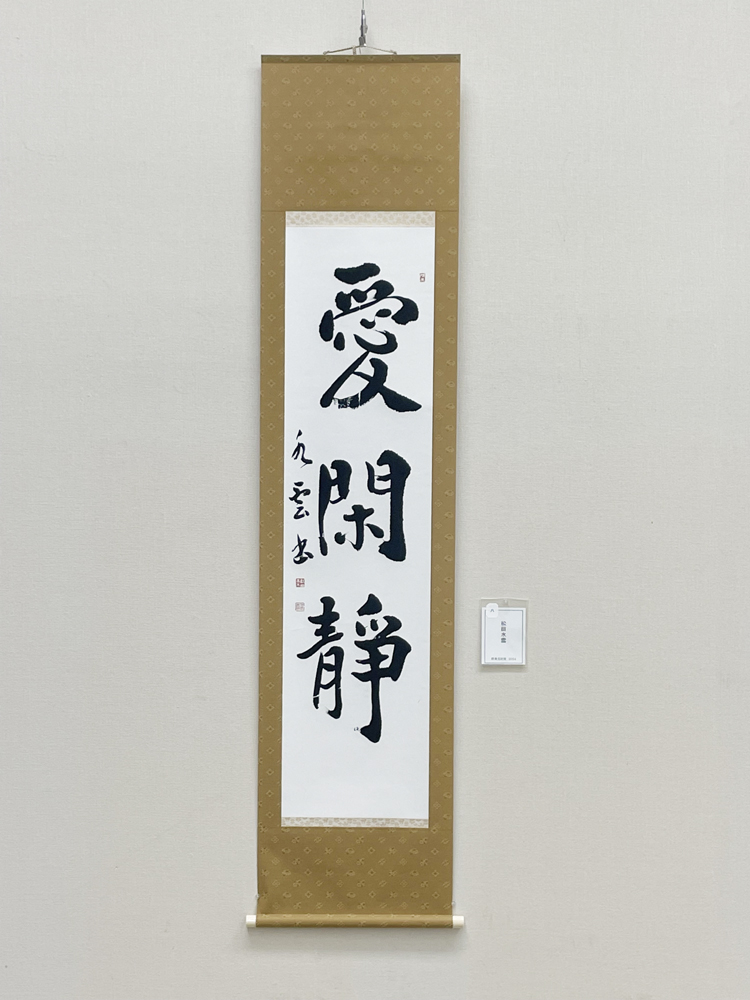 愛閑靜
水雲書